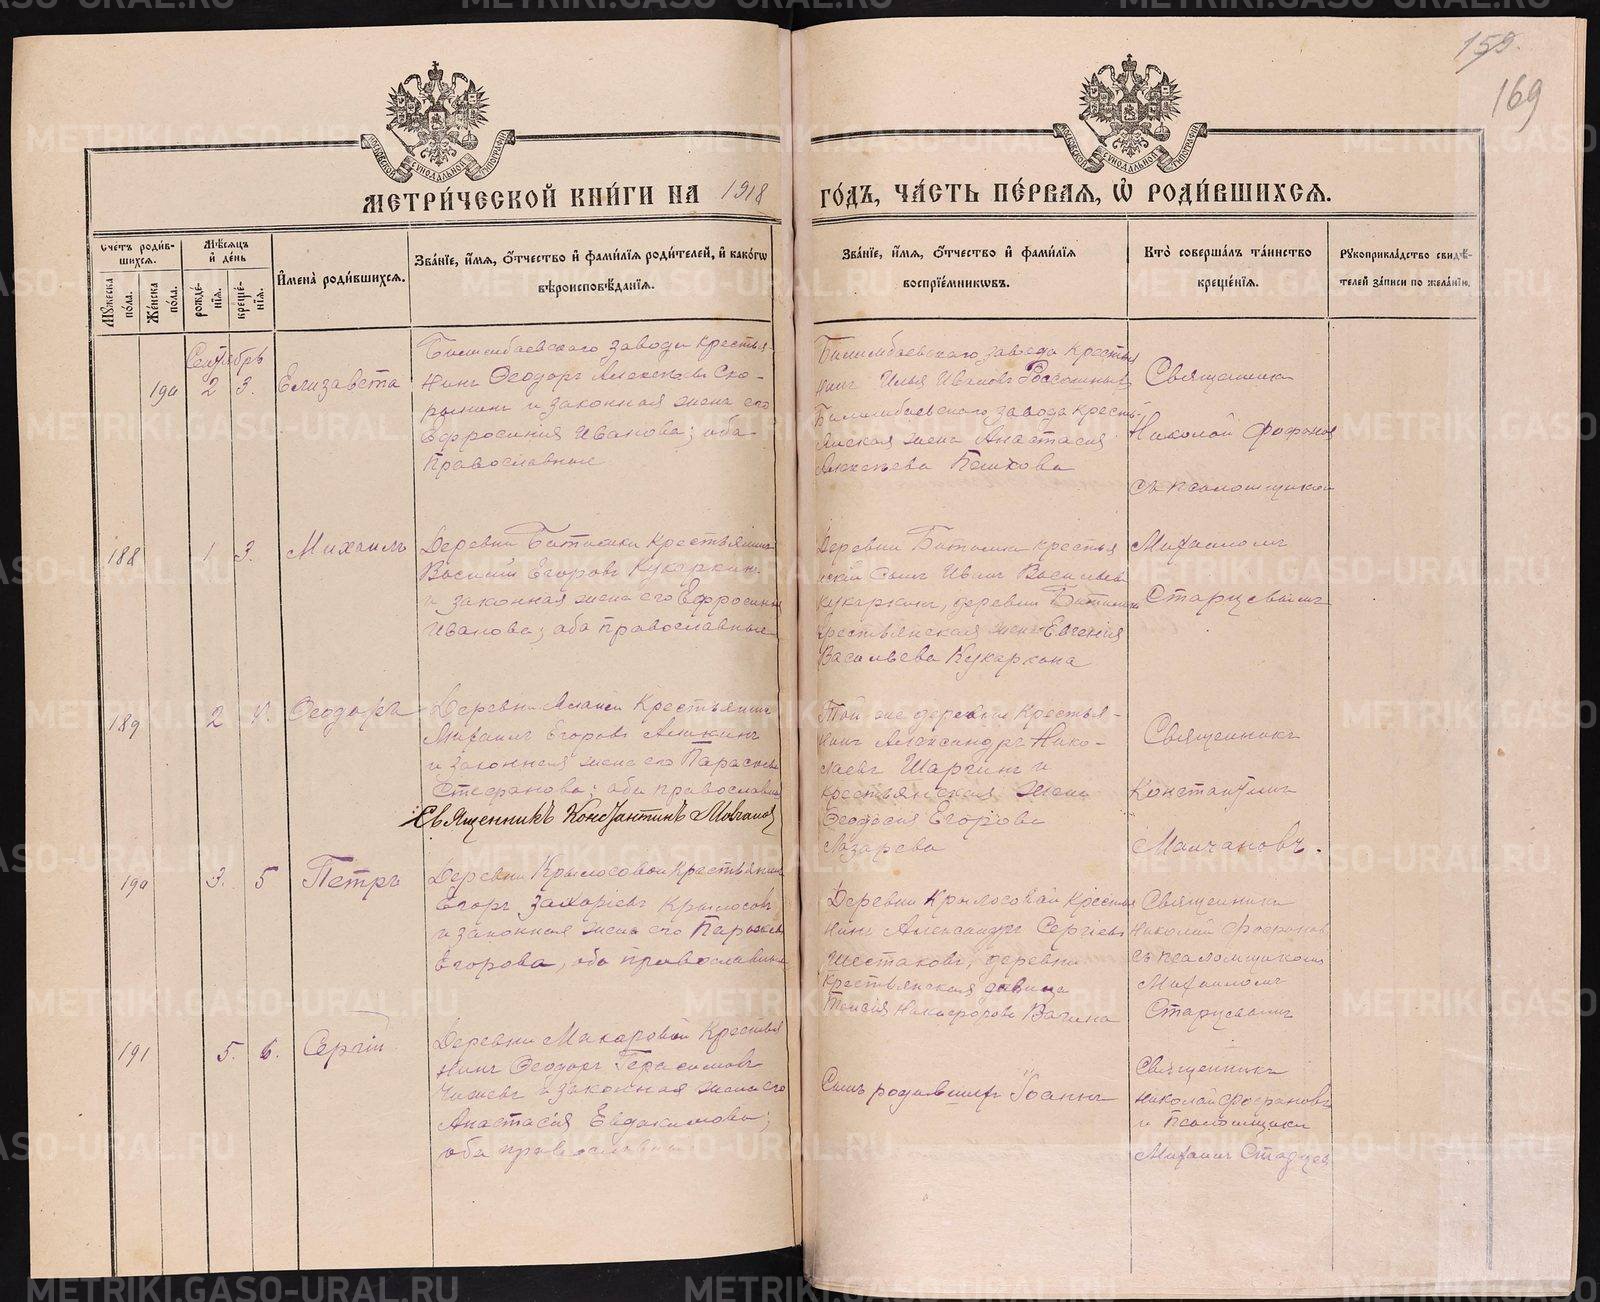 159.
169
МЕТРИ́ЧЕСКОЙ КНИ́ГИ НА 1918
ГО́ДЪ, ЧА́СТЬ ПЕ́РВАЯ, Ѽ РОДИ́ВШИХСЯ.
Счетъ роди́в-
шихся.
Мꙋжеска
по́ла.
Же́нска
по́ла.
Мѣ́сяцъ
и҆ де́нь
рожде́-
нїя.
креще́-
нїя.
И҆мена̀ роди́вшихся.
Зва́нїе, и҆́мя, ѻ҆́тчество и҆ фами́лїя роди́телей, и҆ како́гѡ
вѣроисповѣ́данїя.
Зва́нїе, и҆́мя, ѻ҆́тчество и҆ фами́лїя
воспрїе́мникѡвъ.
Кто̀ соверша́лъ та́инство
креще́нїя.
Рꙋкоприкла́дство свидѣ́-
телей за́писи по жела́нїю.
Сентябрь
190 2 3. Елизавета
Билимбаевскаго завода крестья-
нинъ Ѳеодоръ Алексѣевъ Ско-
рынинъ и законная жена его
Ефросинія Иванова; оба
православные
Билимбаевскаго завода крестья
нинъ Илья Ивановъ
Билимбаевскаго завода кресть-
янская жена Анастасія
Алексѣева Пешкова
Священникъ
Николай Фофанов
съ псаломщикомъ
188 1 3. Михаилъ
Деревни Битимки крестьянинъ
Василій Егоровъ Кукаркинъ
и законная жена его Ефросинія
Иванова; оба православные
Деревни Битимки крестья
нскій сынъ Иванъ Васильевъ
Кукаркинъ, деревни Битимки
крестьянская жена Евгенія
Васильева Кукаркина
Михаиломъ
Старцевымъ
189 2 4. Ѳеодоръ
Деревни крестьянинъ
Михаилъ Егоровъ
и законная жена его Параскева
Стефанова; оба православные
Священникъ Константинъ Молчановъ
Той же деревни крестья-
нинъ Александръ Нико-
лаевъ Шаргинъ и
крестьянская жена
Ѳеодосія Егорова
Лазарева
Священникъ
Константинъ
Молчановъ.
190 3. 5 Петръ
Деревни Крылосовой крестьянинъ
Егоръ Захаріевъ Крылосовъ
и законная жена его Параскева
Егорова, оба православные
Деревни Крылосовой крестья
нинъ Александръ Сергіевъ
Шестаковъ, деревни
крестьянская дѣвица
Таисія Никифорова Вагина
Священникъ
Николай Фофановъ
съ псаломщикомъ
Михаиломъ
Старцевымъ
191 5. 6. Сергій
Деревни Макаровой крестья
нинъ Ѳеодоръ Герасимовъ
Чижевъ и законная жена его
Анастасія Евдокимова;
оба православные
Сынъ родившихъ Іоаннъ
Священникъ
Николай Фофановъ
и псаломщикъ
Михаилъ Старцевъ
METRIKI.GASO-URAL.RU